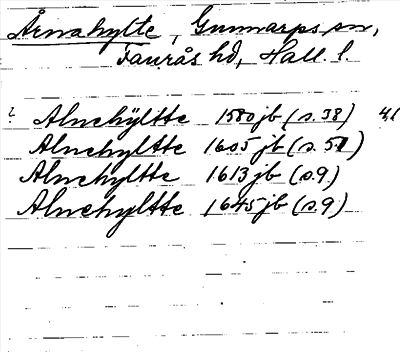 Årnahylte, Gunnarps sn,
Faurås hd, Hall. l.
? Alnehÿltte 1580 jb (s.38) 4,1
Alnehyltte 1605 jb (s.57)
Alnehyltte 1613 jb (s.9)
Alnehyltte 1645 jb (s.9)